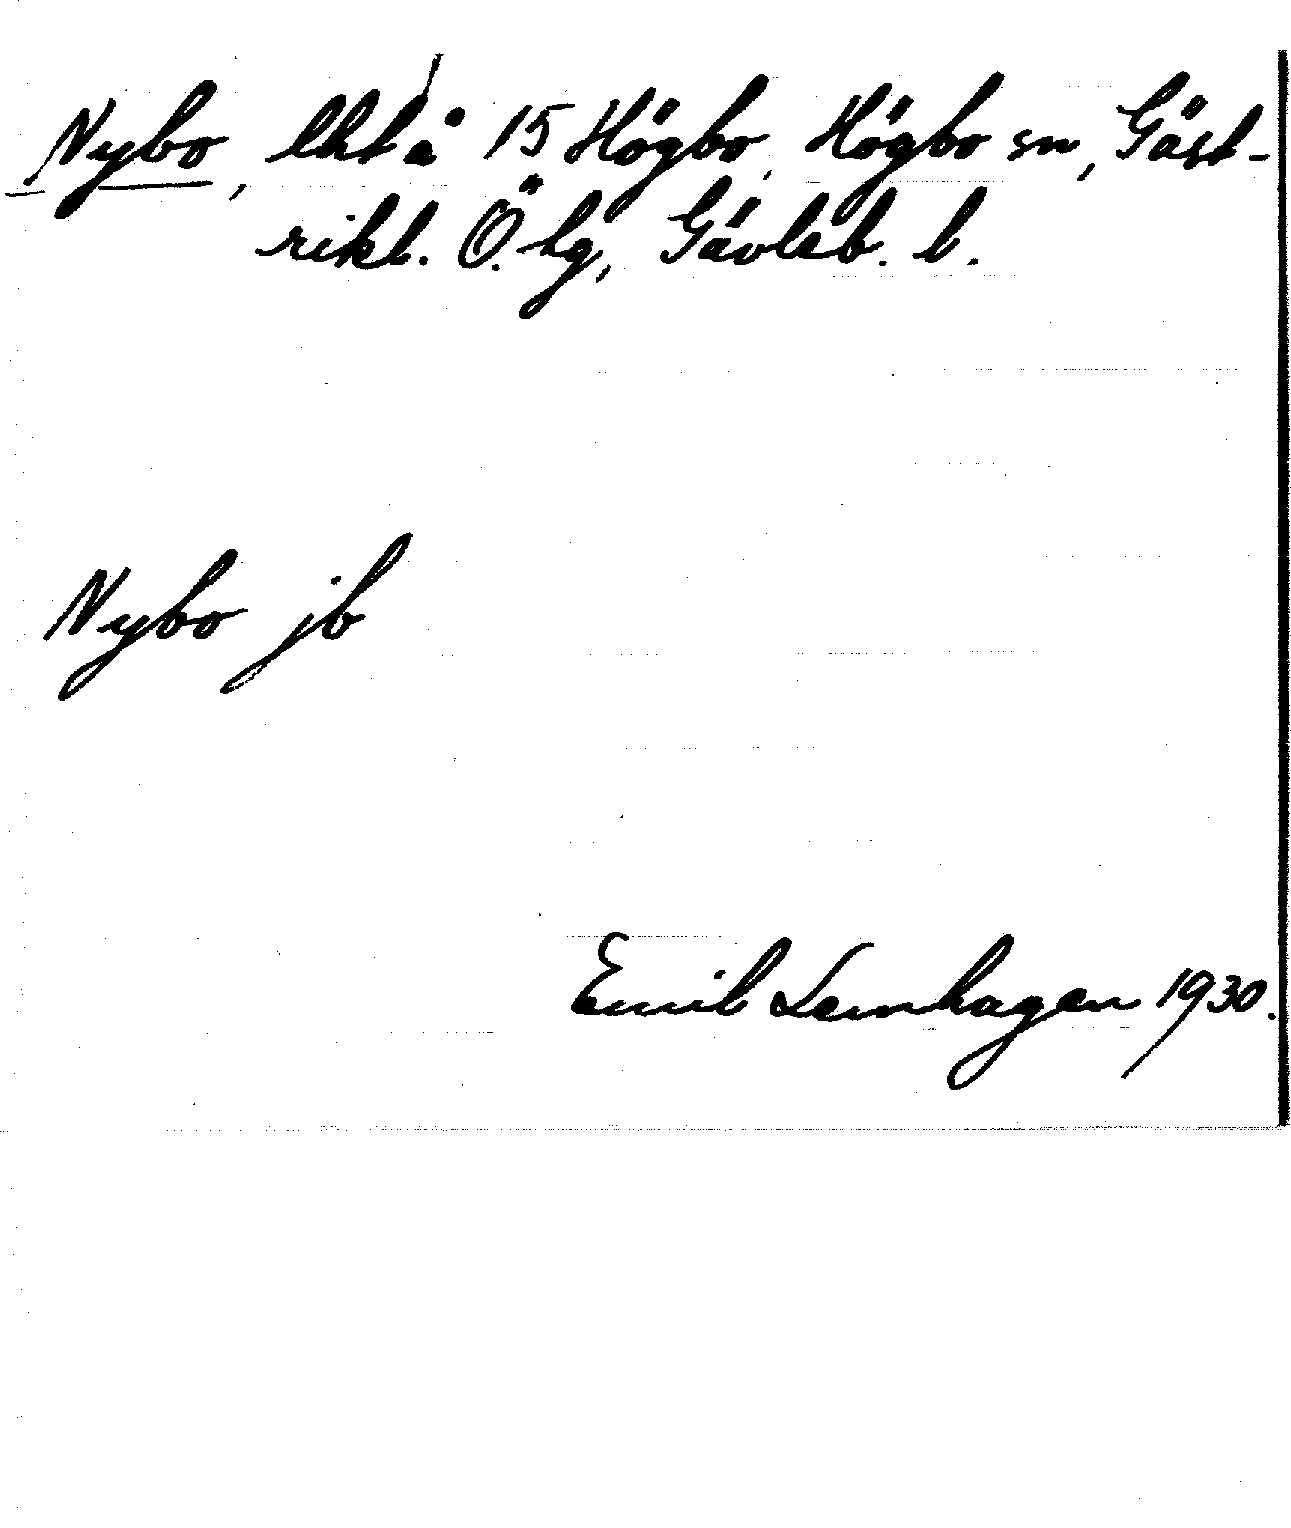 Nybo, lht å 15 Högbo, Högbo sn, Gäst-
rikl. Ö. hg, Gävleb. l.
Nybo jb
Emil Lernhagen 1930.